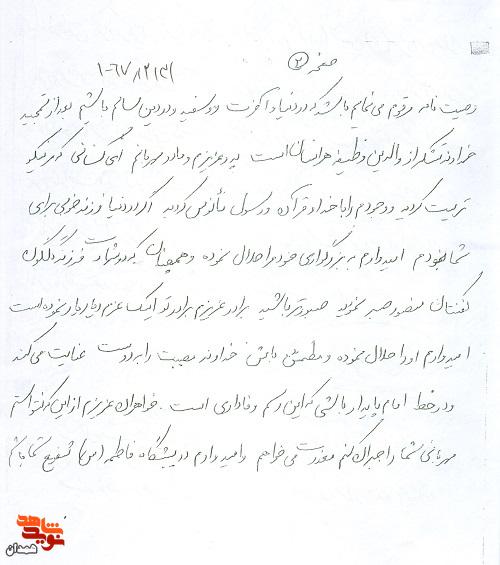 صفحه ۲
وصیت نامه مرقوم می نمایم باشد که در دنیا و آخرت روسفید و در دین سالم باشیم بعد از تمجید
خداوند تشکر از والدین وظیفه هر انسان است پدر عزیزم و مادر مهربانم ای کسانی که مرا نیکو
تربیت کردید و وجودم را با خدا و قرآن و رسول مأنوس کردید اگر در دنیا فرزند خوبی برای
شما نبودم امیدوارم به بزرگواری خود مرا حلال نموده و همچنان که در شهادت فرزند گلگون
کفنتان منصور صبر نمودید صبورتر باشید برادر عزیزم برادر تو اینک عزم دیار یار نموده است
امیدوارم او را حلال نموده و مطمئن باش خداوند مصیبت را برادرت عنایت می کند
و در خط امام پایدار باشی که این رسم وفاداری است. خواهران عزیزم از این که نتوانستم
مهربانی شما را جبران کنم معذرت می خواهم و امیدوارم در پیشگاه فاطمه (س) شفیع شما باشم
نوید شاهد
همدان